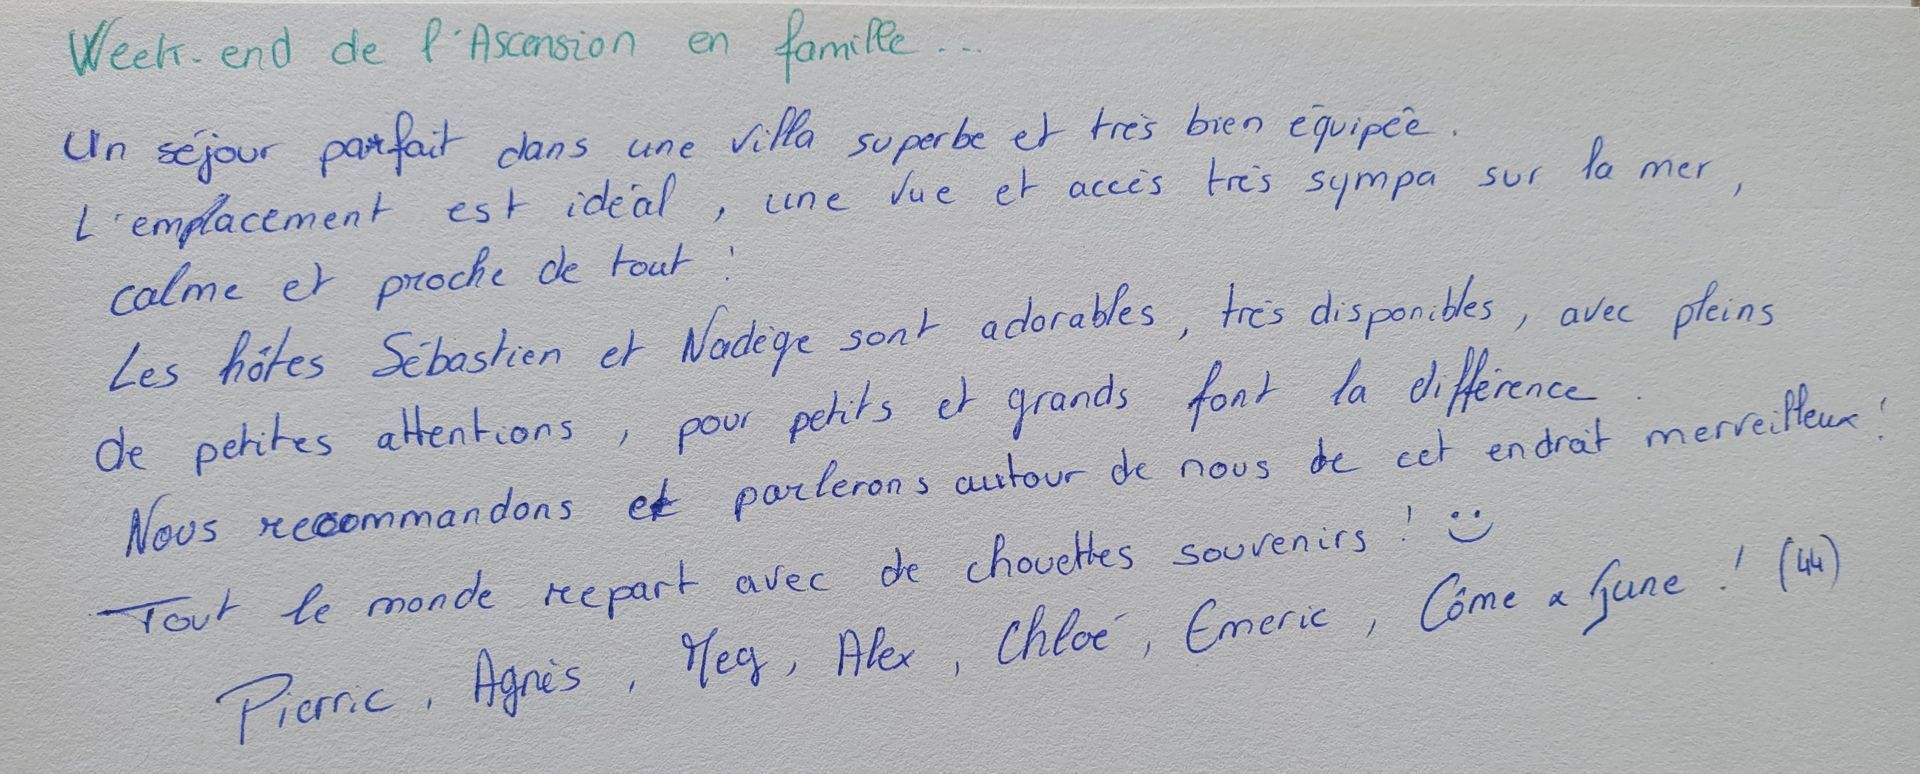 Week-end de l'Ascension en famille...
Un séjour parfait dans une villa superbe et très bien équipée.
L'emplacement est idéal, une vue et accès très sympa sur la mer,
calme et proche de tout !
Les hôtes Sébastien et Nadège sont adorables, très disponibles, avec pleins
de petites attentions, pour petits et grands font la différence.
Nous recommandons et parlerons autour de nous de cet endroit merveilleux !
Tout le monde repart avec de chouettes souvenirs ! :)
Pierric, Agnès, Meg, Alex, Chloé, Emeric, Côme & June ! (44)